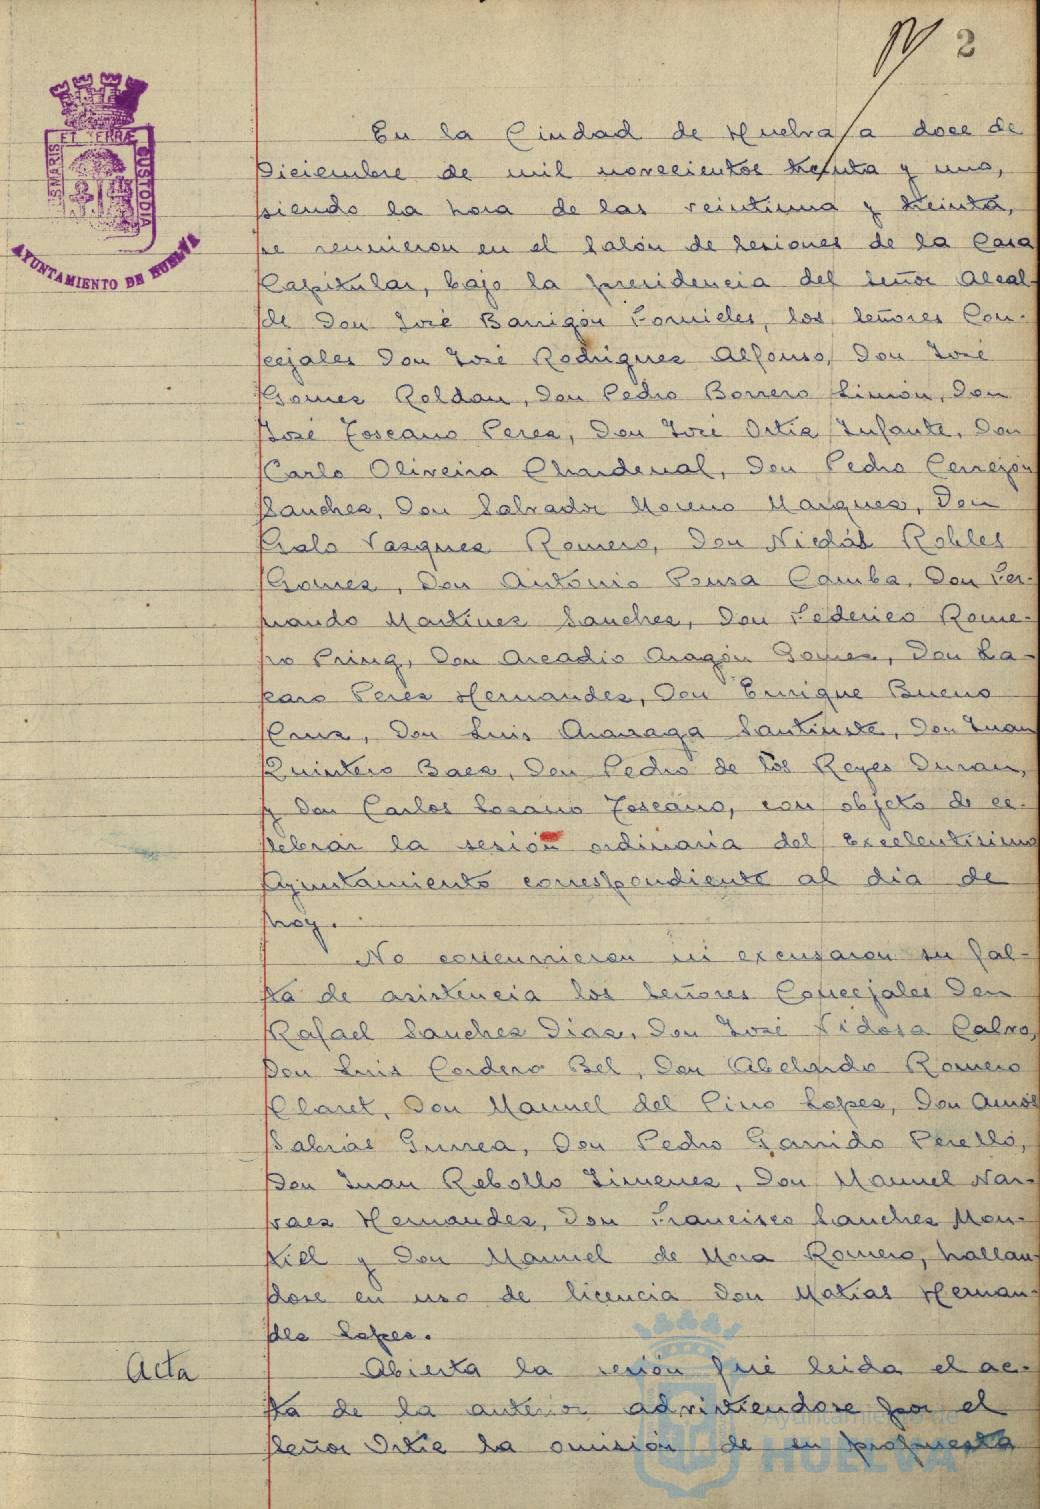 2
En la Ciudad de Huelva, a doce de
Diciembre de mil novecientos treinta y uno,
siendo la hora de las veintiuna y treinta,
se reunieron en el Salón de Sesiones de la Casa
Capitular, bajo la presidencia del Señor Alcal-
de Don José Barrigón Fornieles, los Señores Con-
cejales Don José Rodriguez Alfonso, Don José
Gomez Roldan, Don Pedro Borrero Limón, Don
José Toscano Perez, Don José Ortiz Infante, Don
Carlo Oliveira Chardenal, Don Pedro Cerrejón
Sanchez, Don Salvador Moreno Marquez, Don
Galo Vazquez Romero, Don Nicolás Robles
Gomez, Don Antonio Pousa Camba, Don Fer-
nando Martinez Sanchez, Don Federico Rome-
ro Pring, Don Arcadio Aragón Gomez, Don La-
zaro Perez Hernandez, Don Enrique Bueno
Cruz, Don Luis Ararraga Santiuste, Don Juan
Quintero Baez, Don Pedro de los Reyes Duran,
y Don Carlos Lozano Toscano, con objeto de ce-
lebrar la sesión ordinaria del Excelentísimo
Ayuntamiento correspondiente al dia de
hoy.
No concurrieron ni excusaron su fal-
ta de asistencia los Señores Concejales Don
Rafael Sanchez Diaz, Don José Vidosa Calvo,
Don Luis Cordero Bel, Don Abelardo Romero
Claret, Don Manuel del Pino Lopez, Don Amós
Sabrás Gurrea, Don Pedro Garrido Perelló,
Don Juan Rebollo Jimenez, Don Manuel Nar-
vaez Hernandez, Don Francisco Sanchez Mon-
tiel y Don Manuel de Mora Romero, hallan-
dose en uso de licencia Don Matias Hernan-
dez Lopez.
Acta
Abierta la sesión fué leida el ac-
ta de la anterior advirtiendose por el
Señor Ortiz la omisión de su propuesta
ET TERRÆ CUSTODIA
AYUNTAMIENTO DE HUELVA
Ayuntamiento de
HUELVA